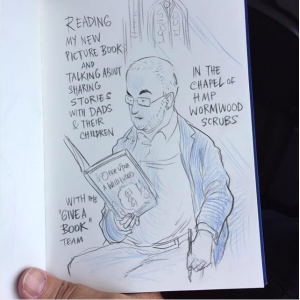 READING
MY NEW
PICTURE BOOK
AND
TALKING ABOUT
SHARING
STORIES
WITH DADS
& THEIR
CHILDREN
IN THE
CHAPEL OF
HMP
WORMWOOD
SCRUBS
WITH THE
"GIVE A
BOOK"
TEAM